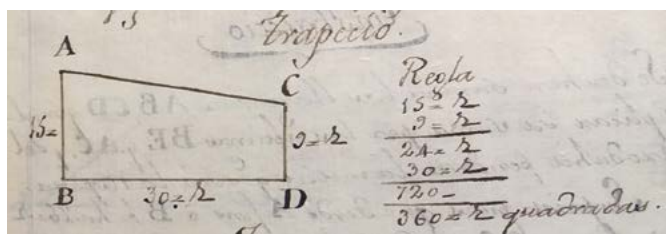 trapecio.
A
C
15=
9=2
B
30=2
D
Regla
15=2
9=2
24=2
30=2
720-
360=2 quadradas.